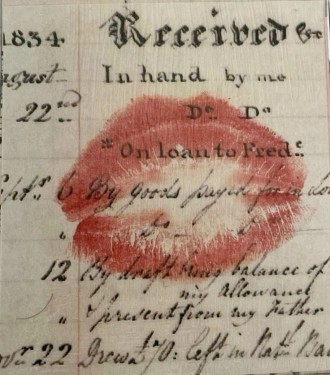 1834 Received &c
August In hand by me
22nd Do Do
" On loan to Fredc
Septr 6 By goods payed for in
" Do
12 By draft being balance of
my allowance
" present from my Father
Novr 22 Drew £70: left in Natl Ban